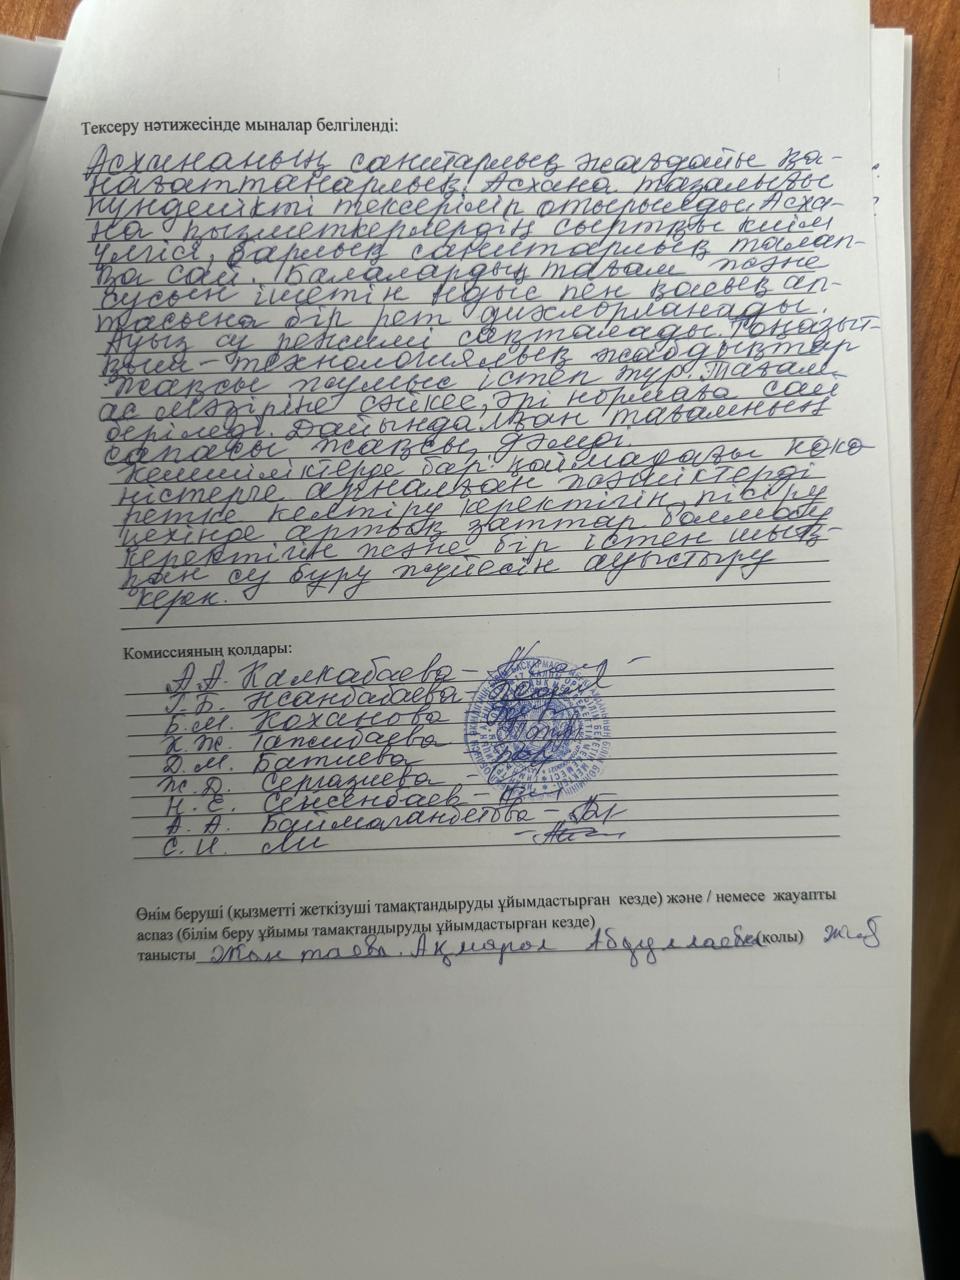 Тексеру нәтижесінде мыналар белгіленді:
Асхананың санитарлық жағдайы қа-
нағаттанарлық. Асхана тазалығы
күнделікті тексеріліп отырылады. Асха-
на қызметкерлердің сыртқы киім
үлгісі, барлық санитарлық талап-
қа сай. Балалардың тағам және
сусын ішетін ыдыс пен қасық ап-
тасына бір рет дихлорланады.
Ауыз су режимі сақталады. Тоңазыт-
қыш - технологиялық жабдықтар
жақсы жұмыс істеп тұр. Тағам
ас мәзіріне сәйкес, әрі нормаға сай
беріледі. Дайындалған тағамның
сапасы жақсы, дәмді.
Кемшіліктерде бар: қоймадағы көкө
ністерге арналған жәшіктерді
ретке келтіру керектігін, пісіру
цехінде артық заттар болмау
керектігін және бір істен шық-
қан су бұру жүйесін ауыстыру
керек.
Комиссияның қолдары:
А.А. Калкабаева -
Г.Б. Жанбабаева -
Б.М. Коханова
К.Ж. Тажибаева
Д.М. Батиева
Ж.Д. Сергазиева -
Н.Е. Сенсенбаев -
А.А. Баймаганбетова -
С.И. Ли -
Өнім беруші (қызметті жеткізуші тамақтандыруды ұйымдастырған кезде) және / немесе жауапты
аспаз (білім беру ұйымы тамақтандыруды ұйымдастырған кезде)
танысты Жантаева Ақмарал Абдуллаевна (қолы)